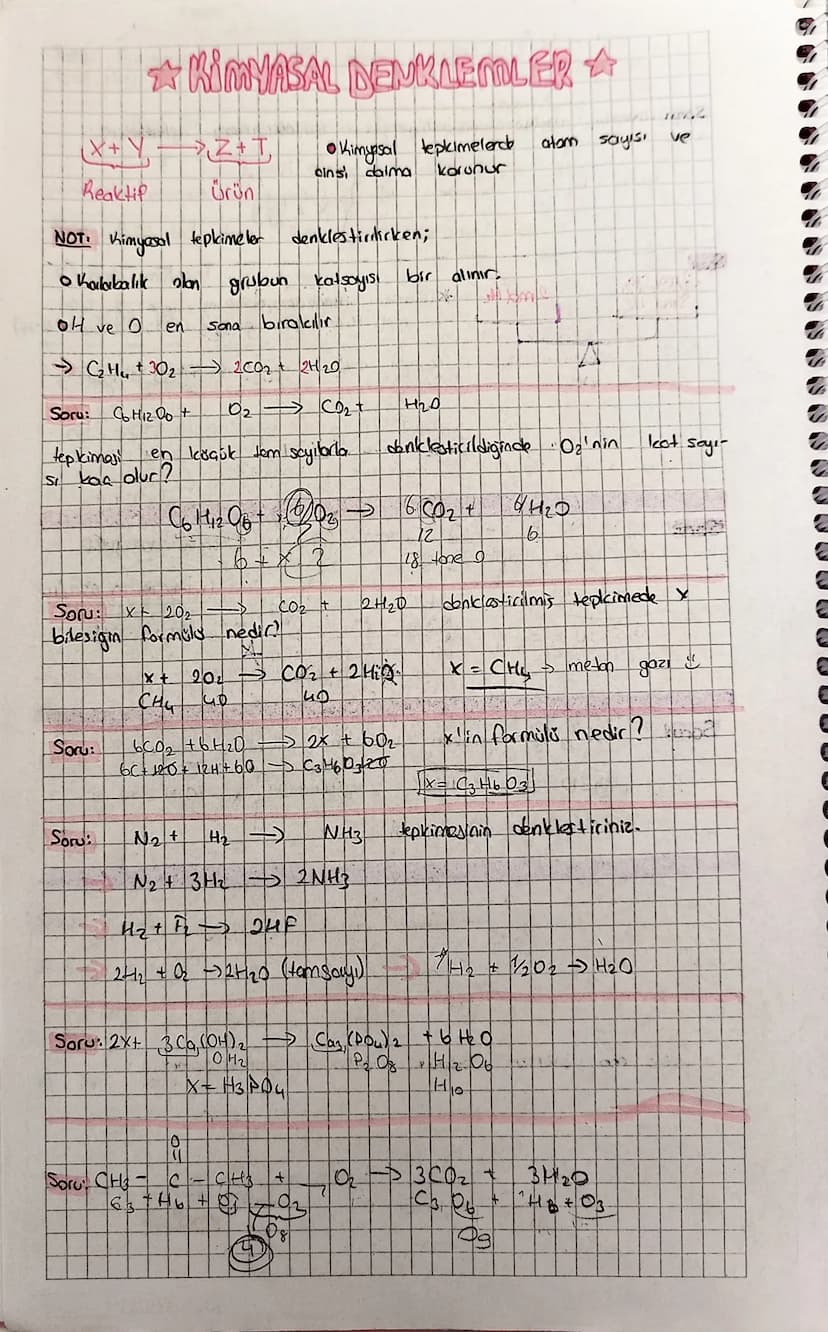 ☆ KİMYASAL DENKLEMLER ☆
X + Y → Z + T
Reaktif Ürün
• Kimyasal tepkimelerde atom sayısı ve
cinsi daima korunur
NOT: Kimyasal tepkimeler denkleştirilirken;
o Kalabalık olan grubun katsayısı bir alınır.
o H ve O en sona bırakılır
→ C2H4 + 3O2 → 2CO2 + 2H2O
Soru: C6H12O6 + O2 → CO2 + H2O
tepkimesi en küçük tam sayılarla denkleştirildiğinde O2'nin kat sayı-
sı kaç olur?
C6H12O6 + 6O2 → 6CO2 + 6H2O
12 6
6 + x 2 18 tane O
Soru: x + 2O2 → CO2 + 2H2O denkleştirilmiş tepkimede x
bileşiğin formülü nedir?
x + 2O2 → CO2 + 2H2O x = CH4 → metan gazı
CH4 4O 4O
Soru: 6CO2 + 6H2O → 2x + 6O2 x'in formülü nedir?
6C + 12O + 12H + 6O → C3H6O3 12O
x = C3H6O3
Soru: N2 + H2 → NH3 tepkimesinin denkleştiriniz.
→ N2 + 3H2 → 2NH3
→ H2 + F2 → 2HF
→ 2H2 + O2 → 2H2O (tamsayı) → 1H2 + 1/2O2 → H2O
Soru: 2x + 3Ca(OH)2 → Ca3(PO4)2 + 6H2O
OH2 P2 O8 H12 O6
x = H3PO4 H10
O
||
Soru: CH3 - C - CH3 + O2 → 3CO2 + 3H2O
C3 + H6 + O3 C3 O6 + H6 + O3
O8 O9
4